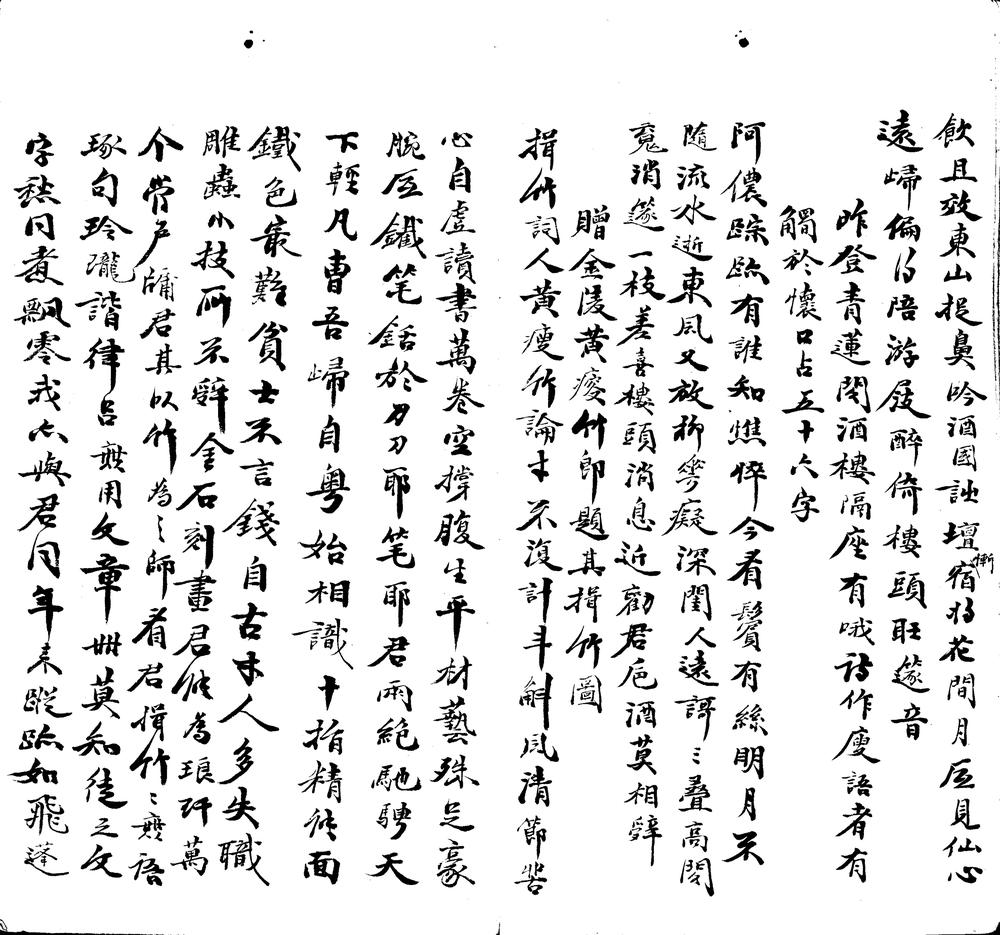 飲且效東山捉鼻吟酒國詖壇宿将花間月底見仙心
慚
遠歸偏得陪游屐醉倚樓頭聒篴音
昨登青蓮閣酒樓隔座有哦詩作廋語者有
觸於懷口占五十六字
阿儂踪跡有誰知憔悴今看鬢有絲明月不
隨流水逝東風又放柳花癡深閨人遠謌〻疊高閣
魂消篴一枝差喜樓頭消息近勸君卮酒莫相辭
贈金陵黃瘦竹即題其揖竹圖
揖竹詞人黃瘦竹論才不復計斗斛風清節苦
心自虛讀書萬卷空撑腹生平材藝殊足豪
腕底鐵笔銛於刀刀耶笔耶君兩絕馳騁天
下輕凡曹吾歸自粵始相識十指精修面
鐵色最難貧士不言錢自古才人多失職
雕蟲小技所不辭金石刻畫君修為琅玕萬
个當戶牖君其以竹為之師看君揖竹〻無語
琢句玲瓏諧律呂無用文章世莫知徒之文
字愁同煮飄零我亦與君同年來蹤跡如飛蓬